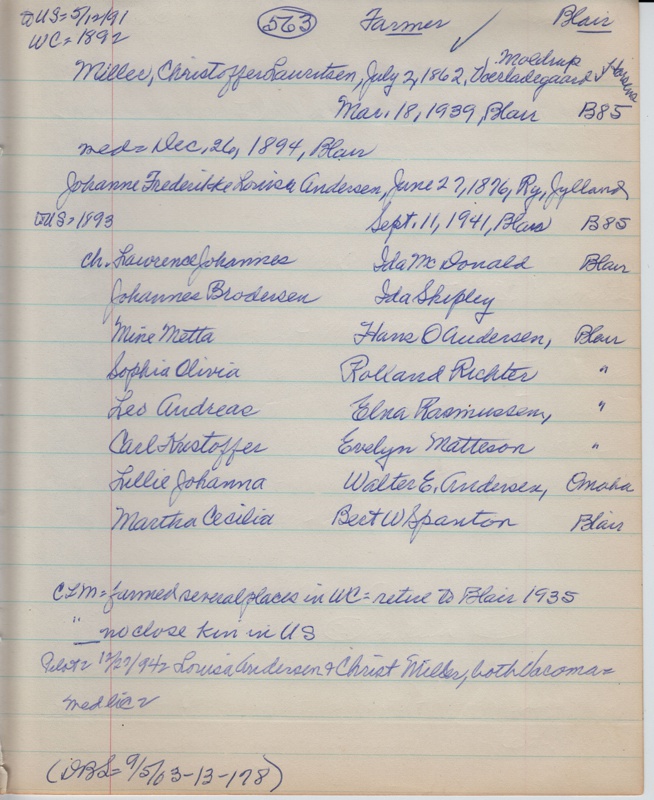 US=5/12/91 563 Farmer Blair
WC=1892
Moldrup
Miller, Christoffer Lauritsen, July 2, 1862, Voerladegaard Horsens
Mar. 18, 1939, Blair B85
med= Dec. 26, 1894, Blair
Johanne Frederikke Lovisa Andersen, June 27, 1876, Ry, Jylland
US=1893 Sept. 11, 1941, Blair B85
ch. Lawrence Johannes Ida McDonald Blair
Johannes Brodersen Ida Shipley
Mine Metta Hans O Andersen, Blair
Sophia Olivia Rolland Richter "
Leo Andreas Elna Rasmussen, "
Carl Kristoffer Evelyn Matteson "
Lillie Johanna Walter E. Andersen, Omaha
Martha Cecilia Bert W Spanton Blair
CLM= farmed several places in WC= retire to Blair 1935
" = no close kin in US
Pilot= 12/27/94= Lovisa Andersen + Christ Miller, both Vacoma=
med lic=
(DBL= 9/5/03-13-178)